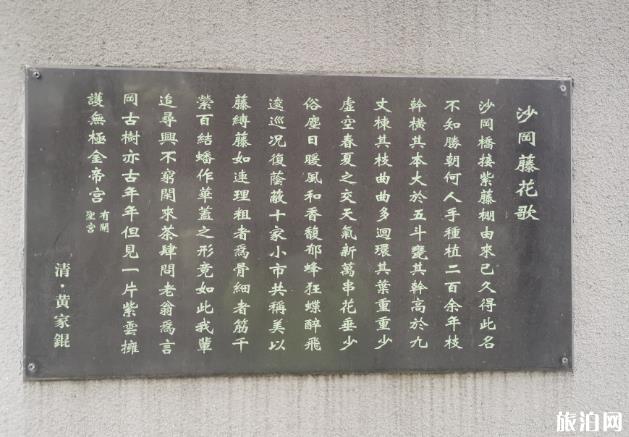 沙岡藤花歌
沙岡橋接紫藤棚由來已久得此名
不知勝朝何人手種植二百余年枝
幹橫其本大於五斗甕其幹高於九
丈棟其枝曲曲多迴環其葉重重少
虛空春夏之交天氣新萬串花垂少
俗塵日暖風和香馥郁蜂狂蝶醉飛
逡巡况復蔭蔽十家小市共稱美以
藤縛藤如連理粗者爲骨細者筋千
縈百結蟠作華蓋之形竟如此我輩
追尋興不窮閑來茶肆問老翁爲言
岡古樹亦古年年但見一片紫雲擁
護無極金帝宫
有關
聖宫
清·黄家錕
旅泊网